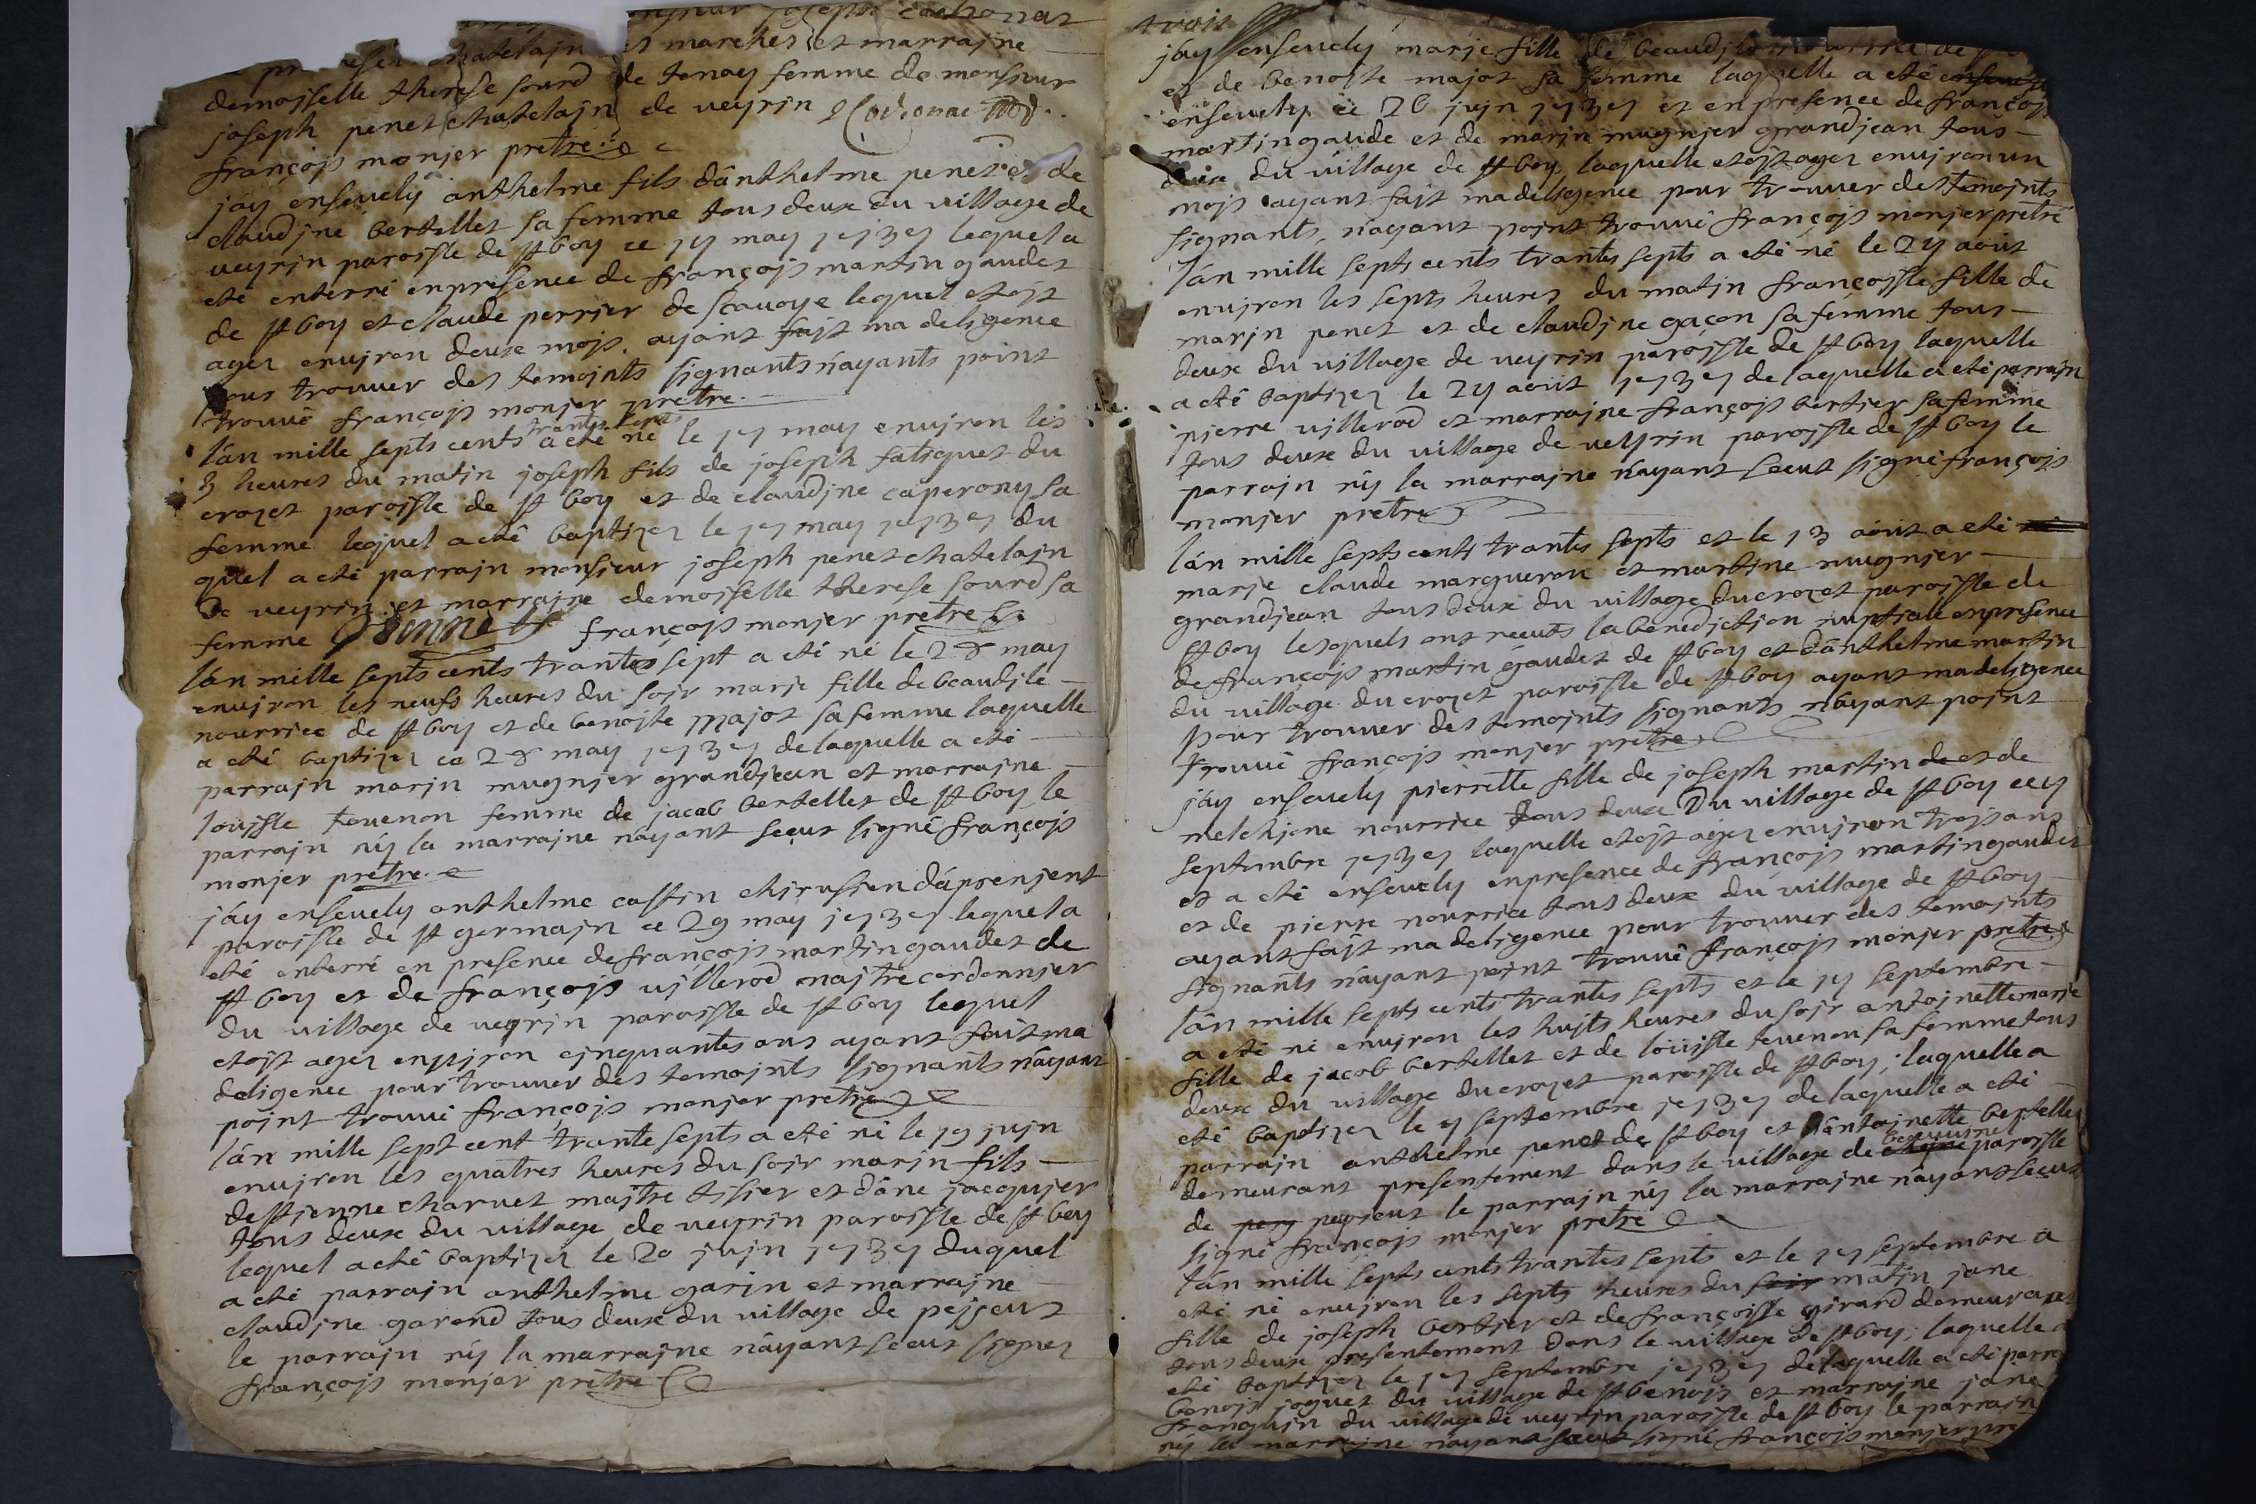 joseph
chatelain et marches et marrajne
demoiselle therese sourd de tenay femme de monsieur
joseph penet chatelain de veyrin
françojs monjer prêtre
jáy ensevely anthelme fils dânthelme penet et de
claudjne bertellet sa femme tous deux du village de
veyrin paroisse de st boy ce 17 may 1737 lequel a
eté enterré en presence de françojs martin gaudet
de st boy et claude perrier de scavoye lequel etojt
agez environ deux mojs. ayant fajt ma deligence
pour trouver des temojnts signants n'ayants point
trouvé françojs monjer prêtre
lán mille septs cents trantes septs a eté né le 17 may environ les
3 heures du matin joseph fils de joseph fatiguet du
crozet paroisse de st boy et de claudjne caperony sa
femme lequel a eté baptizez le 17 may 1737 du
quel a eté parrajn monsjeur joseph penet chatelajn
de veyrin et marrajne demoiselle therese sourd sa
femme françojs monjer prêtre
lán mille septs cents trantes sept a eté né le 28 may
environ les neufs heures du sojr marje fille de beaudjle
nourrice de st boy et de benojte major sa femme laquelle
a eté baptizez ce 28 may 1737 de laquelle a eté
parrajn marjn mugnjer grandjean et marrajne
louisse tevenon femme de jacob bertellet de st boy le
parrajn nÿ la marrajne náyant sceut signé françojs
monjer prêtre
jáy ensevely anthelme castin chjrusjen dáprenjent
paroisse de st germajn ce 29 may 1737 lequel a
eté enterré en presence de françojs martin gaudet de
st boy et de françojs villerod majtre cordonnjer
du village de veyrin paroisse de st boy lequel
etojt agez environ cinquantes ans ayant fait ma
deligence pour trouver des temojnts signants náyant
point trouvé françojs monjer prêtre
lán mille sept cent trante septs a eté né le 19 juin
environ les quatres heures du sojr marjn fils
destjenne charvet majtre tisier et dâne jacqujer
tous deux du village de veyrin paroisse de st boy
lequel a eté baptizez le 20 juin 1737 duquel
a eté parrajn anthelme garin et marrajne
claudjne garend tous deux du village de pejzeut
le parrajn nÿ la marrajne náyant sceut signez
françojs monjer prêtre
trois
jay ensevely marje fille de beaudjle nourrice de
et de benojte major sa femme laquelle a eté
ensevely ce 26 juin 1737 et en presence de françojs
martin gaude et de marin mugnjer grandjean tous
deux du village de st boy laquelle etojt agez environ un
mojs ayant fajt ma deligence pour trouver des temojnts
signants, náyant point trouvé françojs monjer prêtre
lán mille septs cents trantes septs a eté né le 24 aoùt
environ les septs heures du matin françojsse fille de
marjn penet et de claudjne gaçon sa fémme tous
deux du village de veyrin paroisse de st boy laquelle
a eté baptizez le 24 aoùt 1737 de laquelle a eté parrajn
pierre villerod et marrajne françojs bertier sa femme
tous deux du village de veyrin paroisse de st boy le
parrajn nÿ la marrajne náyant sceut signé françojs
monjer prêtre
lán mille septs cents trantes septs et le 13 aoùt a eté
marje claude margueron et martine mugnjer
grandjean tous deux du village du crozet paroisse de
st boy lesquels ont receuts la benedjctjon nuptiale en presence
de françojs martin gaudet de st boy et dânthelme martin
du village du crozet paroisse de st boy ayant ma deligence
pour trouver des temojnts signants náyant point
trouvé françojs monjer prêtre
jáy ensevely pierrette fille de joseph martin de et de
melchjone nourrice tous deux du village de st boy ce 4
septembre 1737 laquelle etojt agez environ trojs ans
et a eté ensevely en presence de françojs martin gaudet
et de pierre nourrice tous deux du village de st boy
ayant fajt ma deligence pour trouver des temojnts
signants náyant point trouvé françojs monjer prêtre
lán mille septs cents trantes septs et le 14 septembre
a eté né environ les hujts heures du sojr antojnette marje
fille de jacob bertellet et de loüisse tevenon sa fémme tous
deux du village du crozet paroisse de st boy, laquelle a
eté baptizez le 4 septembre 1737 de laquelle a eté
parrajn anthelme penet de st boy et dântojnette bertellet
demeurant presentement dans le village de paroisse
de pezj pezjeut le parrajn nÿ la marrajne náyant sceut
signé françojs monjer prêtre
lán mille septs cents trantes septs et le 17 septembre a
eté né environ les septs heures du sojr matjn jane
fille de joseph bertjer et de françojsse girard demeurant
tous deux presentement dans le village de st boy, laquelle a
eté baptizez le 17 septembre 1737 de laquelle a eté parra
benojs joguet du village de st benojs et marrajne jane
franquin du village de veyrin paroisse de st boy le parrajn
nÿ la marrajne náyant sceut signé françojs monjer pre